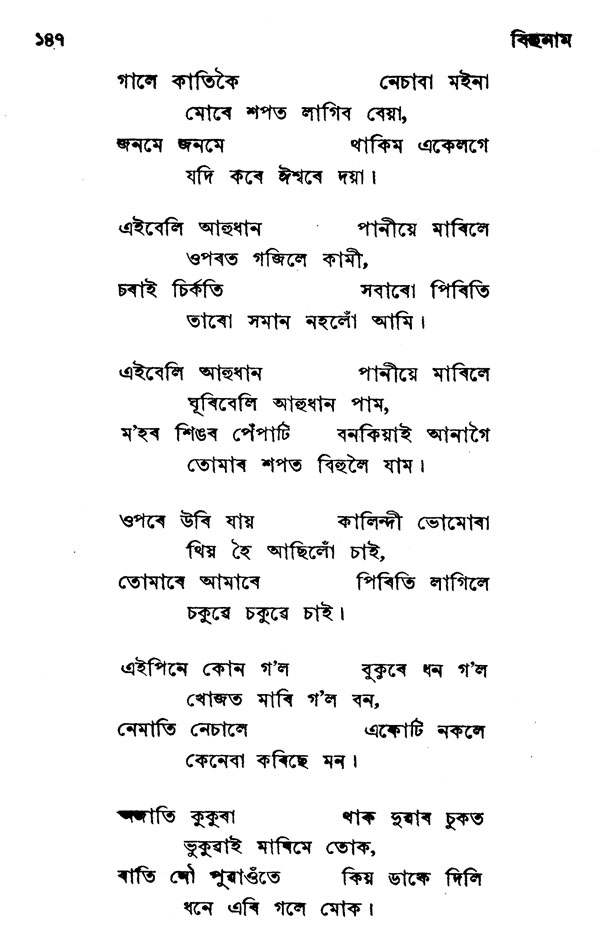 ১৪৭ বিহুনাম
গালে কাতিকৈ নেচাবা মইনা
মোৰে শপত লাগিব বেয়া,
জনমে জনমে থাকিম একেলগে
যদি কৰে ঈশ্বৰে দয়া।
এইবেলি আহুধান পানীয়ে মাৰিলে
ওপৰত গজিলে কামী,
চৰাই চিৰ্কতি সবাৰো পিৰিতি
তাৰো সমান নহলোঁ আমি।
এইবেলি আহুধান পানীয়ে মাৰিলে
ঘূৰিবেলি আহুধান পাম,
ম'হৰ শিঙৰ পেঁপাটি বনকিয়াই আনাগৈ
তোমাৰ শপত বিহুলৈ যাম।
ওপৰে উৰি যায় কালিন্দী ভোমোৰা
থিয় হৈ আছিলোঁ চাই,
তোমাৰে আমাৰে পিৰিতি লাগিলে
চকুৱে চকুৱে চাই।
এইপিনে কোন গ'ল বুকুৰে ধন গ'ল
খোজত মাৰি গ'ল বন,
নেমাতি নেচালে একোটি নকলে
কেনেবা কৰিছে মন।
কুকুৰা থাক দুৱাৰ চুকত
ভুকুৱাই মাৰিমে তোক,
ৰাতি নৌ পুৱাওঁতে কিয় ডাকে দিলি
ধনে এৰি গলে মোক।